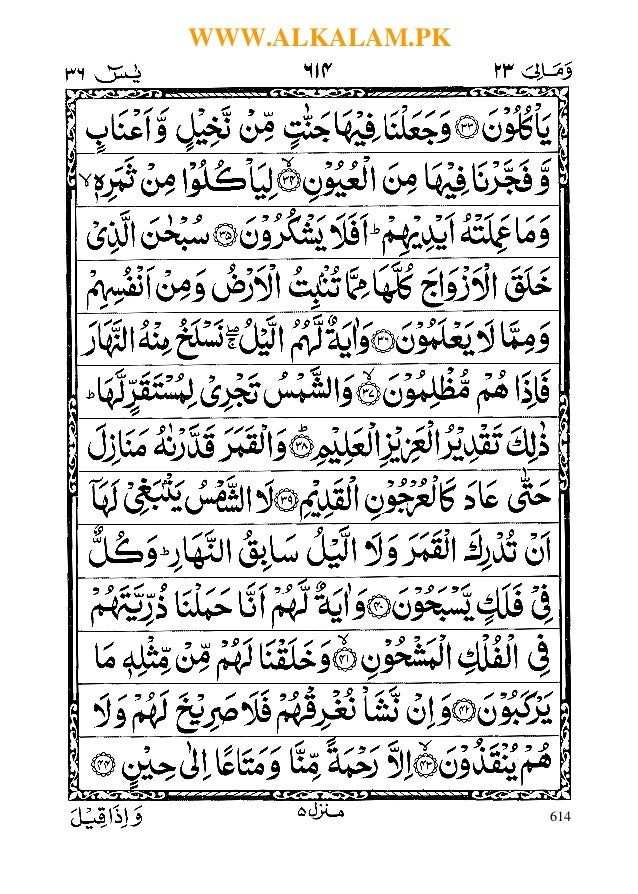 WWW.ALKALAM.PK
وَمَالِیَ ۲۳ ۶۱۴ یٰسٓ ۳۶
یَاْكُلُوْنَ ۝۳۳ وَجَعَلْنَا فِیْهَا جَنّٰتٍ مِّنْ نَّخِیْلٍ وَّ اَعْنَابٍ
وَّ فَجَّرْنَا فِیْهَا مِنَ الْعُیُوْنِ ۝۳۴ۙ لِیَاْكُلُوْا مِنْ ثَمَرِهٖ ۙ
وَمَا عَمِلَتْهُ اَیْدِیْهِمْ ؕ اَفَلَا یَشْكُرُوْنَ ۝۳۵ سُبْحٰنَ الَّذِیْ
خَلَقَ الْاَزْوَاجَ كُلَّهَا مِمَّا تُنْۢبِتُ الْاَرْضُ وَمِنْ اَنْفُسِهِمْ
وَمِمَّا لَا یَعْلَمُوْنَ ۝۳۶ وَاٰیَةٌ لَّهُمُ الَّیْلُ ۖۚ نَسْلَخُ مِنْهُ النَّهَارَ
فَاِذَا هُمْ مُّظْلِمُوْنَ ۝۳۷ۙ وَالشَّمْسُ تَجْرِیْ لِمُسْتَقَرٍّ لَّهَا ؕ
ذٰلِكَ تَقْدِیْرُ الْعَزِیْزِ الْعَلِیْمِ ۝۳۸ؕ وَالْقَمَرَ قَدَّرْنٰهُ مَنَازِلَ
حَتّٰی عَادَ كَالْعُرْجُوْنِ الْقَدِیْمِ ۝۳۹ لَا الشَّمْسُ یَنْۢبَغِیْ لَهَاۤ
اَنْ تُدْرِكَ الْقَمَرَ وَلَا الَّیْلُ سَابِقُ النَّهَارِ ؕ وَكُلٌّ
فِیْ فَلَكٍ یَّسْبَحُوْنَ ۝۴۰ وَاٰیَةٌ لَّهُمْ اَنَّا حَمَلْنَا ذُرِّیَّتَهُمْ
فِی الْفُلْكِ الْمَشْحُوْنِ ۝۴۱ۙ وَخَلَقْنَا لَهُمْ مِّنْ مِّثْلِهٖ مَا
یَرْكَبُوْنَ ۝۴۲ وَاِنْ نَّشَاْ نُغْرِقْهُمْ فَلَا صَرِیْخَ لَهُمْ وَلَا
هُمْ یُنْقَذُوْنَ ۝۴۳ۙ اِلَّا رَحْمَةً مِّنَّا وَمَتَاعًا اِلٰی حِیْنٍ ۝۴۴
منزل ۵
وَ اِذَا قِیْلَ
614